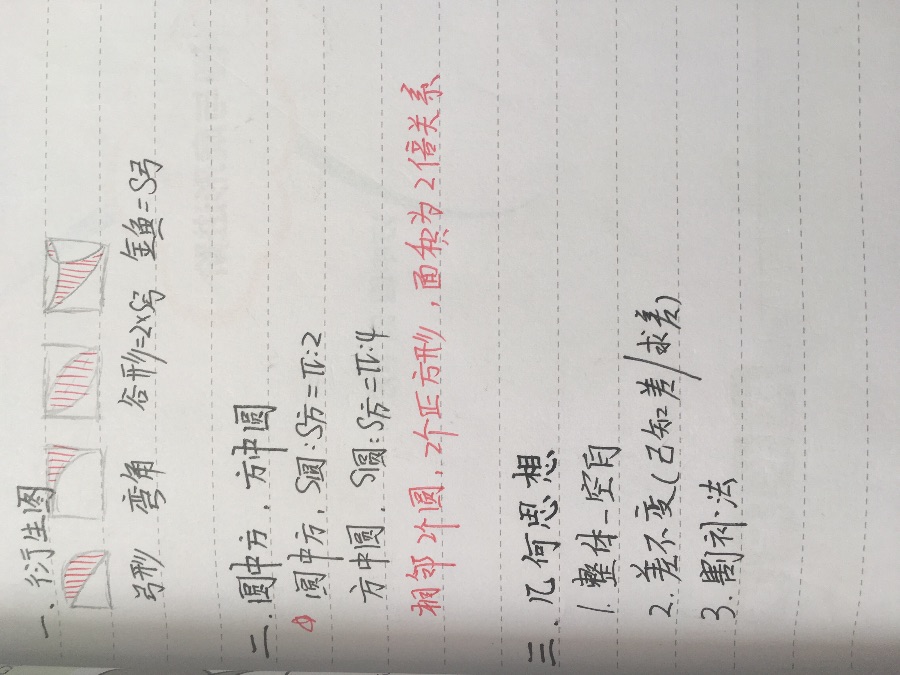 一、衍生图
弓形 弯角 谷形=2×S弓 金鱼=S弓
二.圆中方.方中圆
圆中方,S圆:S方=π:2
方中圆.S圆:S方=π:4
相邻2个圆,2个正方形,面积为2倍关系
三.几何思想
1.整体-空白
2.差不变(已知差/求差)
3.割补法